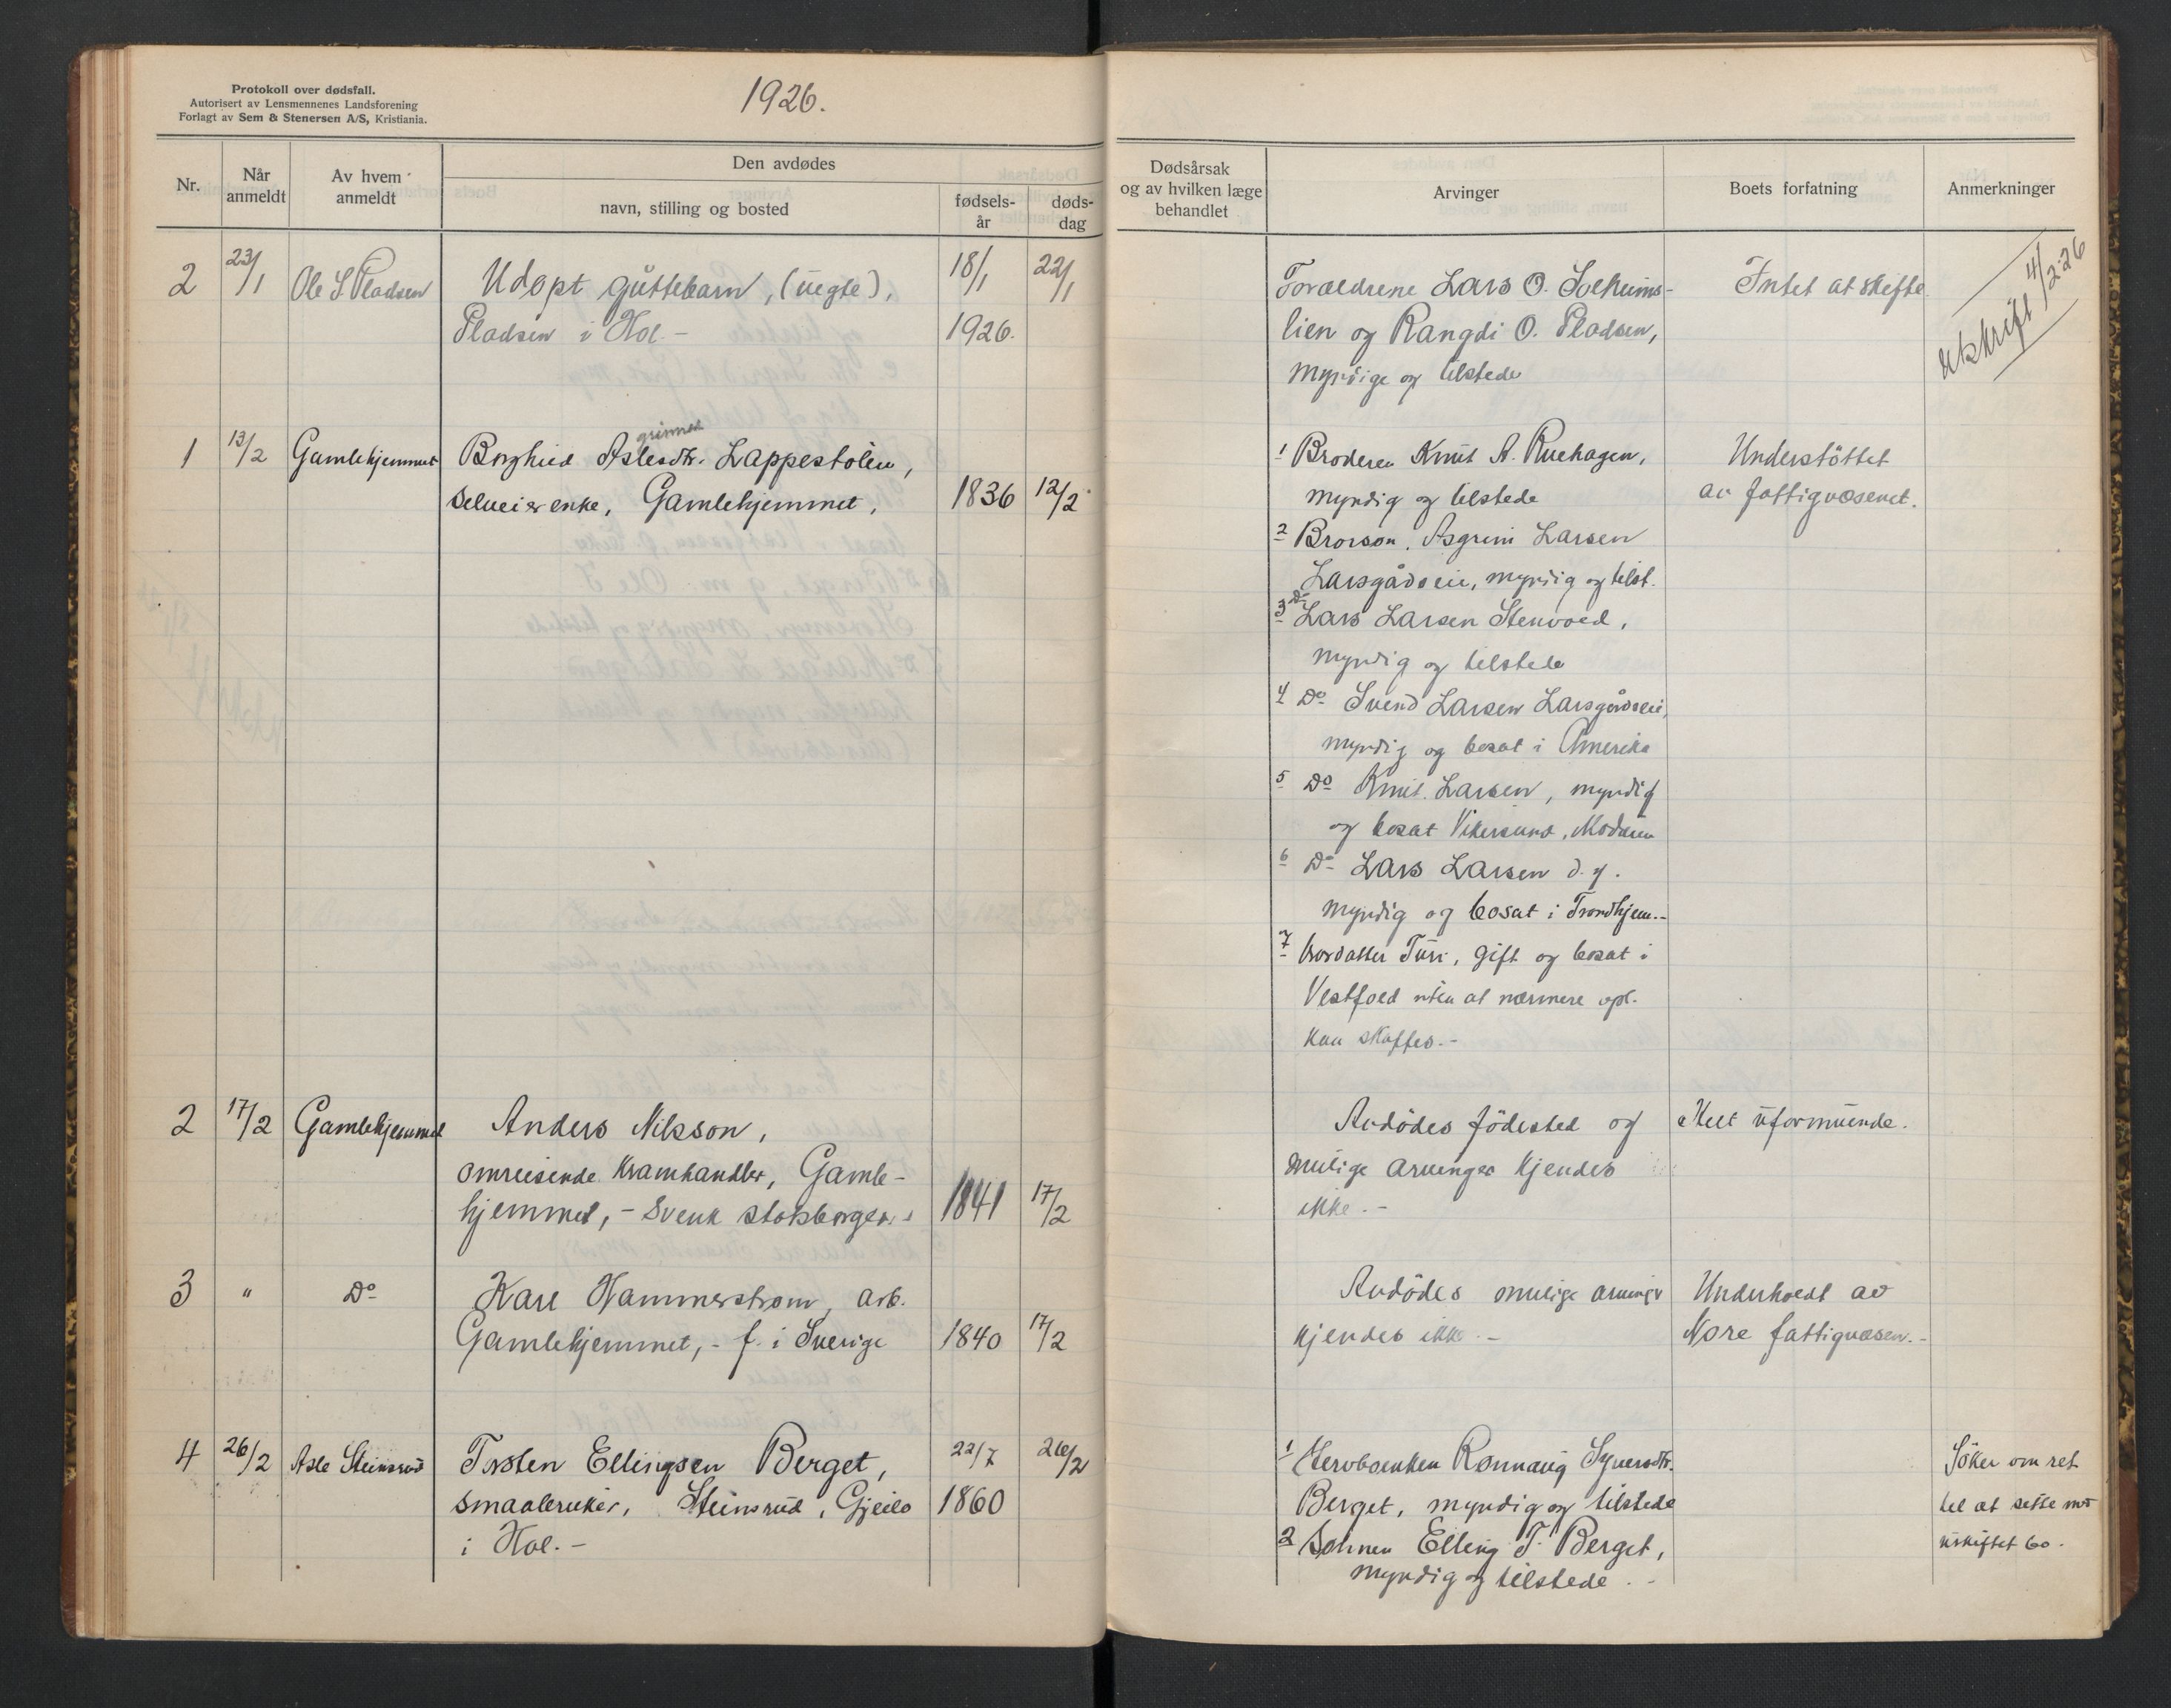 Protokoll over dødsfall.
Autorisert av Lensmennenes Landsforening
Forlagt av Sem & Stenersen A/S, Kristiania.
1926.
Nr.
Når anmeldt
Av hvem anmeldt
Den avdødes
navn, stilling og bosted
fødsels-
år
døds-
dag
Dødsårsak
og av hvilken læge
behandlet
Arvinger
Boets forfatning
Anmerkninger
2 23/1 Ole S. Pladsen Udøpt guttebarn, (uegte), 18/1 22/1
Pladsen i Hol.- 1926.
Forældrene Lars O. Solheims-
lien og Rangdi O. Pladsen,
myndige og tilstede
Intet at skifte
Utskrift 4/2-26
1 13/2 Gamlehjemmet Borghild Aslesdtr. Lappestølen,
selveierenke, Gamlehjemmet, 1836 12/2
1 Broderen Knut A. Ruehagen,
myndig og tilstede
2 Brorson, Asgrim Larsen
Larsgårdseie, myndig og tilst.
3 Do Lars Larsen Stenvold,
myndig og tilstede
4 Do Svend Larsen Larsgårdseie,
myndig og bosat i Amerika
5 Do Knut Larsen, myndig
og bosat Vikersund, Modum
6 Do Lars Larsen d.y.
myndig og bosat i Trondhjem.-
7 Brordatter Turi, gift og bosat i
Vestfold uten at nærmere opl.
kan skaffes.-
Understøttet
av fattigvæsenet.
2 17/2 Gamlehjemmet Anders Nilsson,
omreisende kramhandler, Gamle-
hjemmet, - Svensk statsborger.- 1841 17/2
Avdødes fødested og
mulige arvinger kjendes
ikke.-
Helt uformuende.
3 " Do Karl Hammerstrøm, arb.
Gamlehjemmet, - f. i Sverige 1840 17/2
Avdødes mulige arvinger
kjendes ikke.-
Underholdt av
Nore fattigvæsen.-
4 26/2 Asle Steinsrud Torsten Ellingsen Berget, 22/7 26/2
smaabruker, Steinsrud, Gjeilo 1860
i Hol.-
1 Stervboenken Rønnaug Syversdtr.
Berget, myndig og tilstede
2 Sønnen Elling T. Berget,
myndig og tilstede.-
Søker om ret
til at sitte m
uskiftet bo.